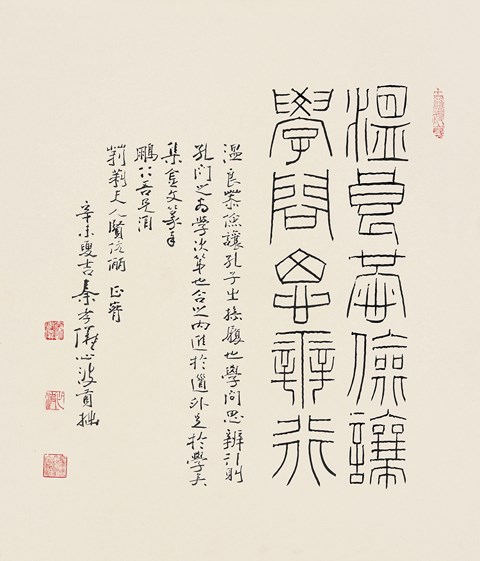 溫良恭儉讓
學問思辨行
溫良恭儉讓孔子之操履也學問思辨行則
孔門之為學次第也合之內進於道外足於學矣
集金文篆奉
鵬公吾兄洎
莉夫人賢伉儷 正
辛未夏吉秦孝儀心波貢拙